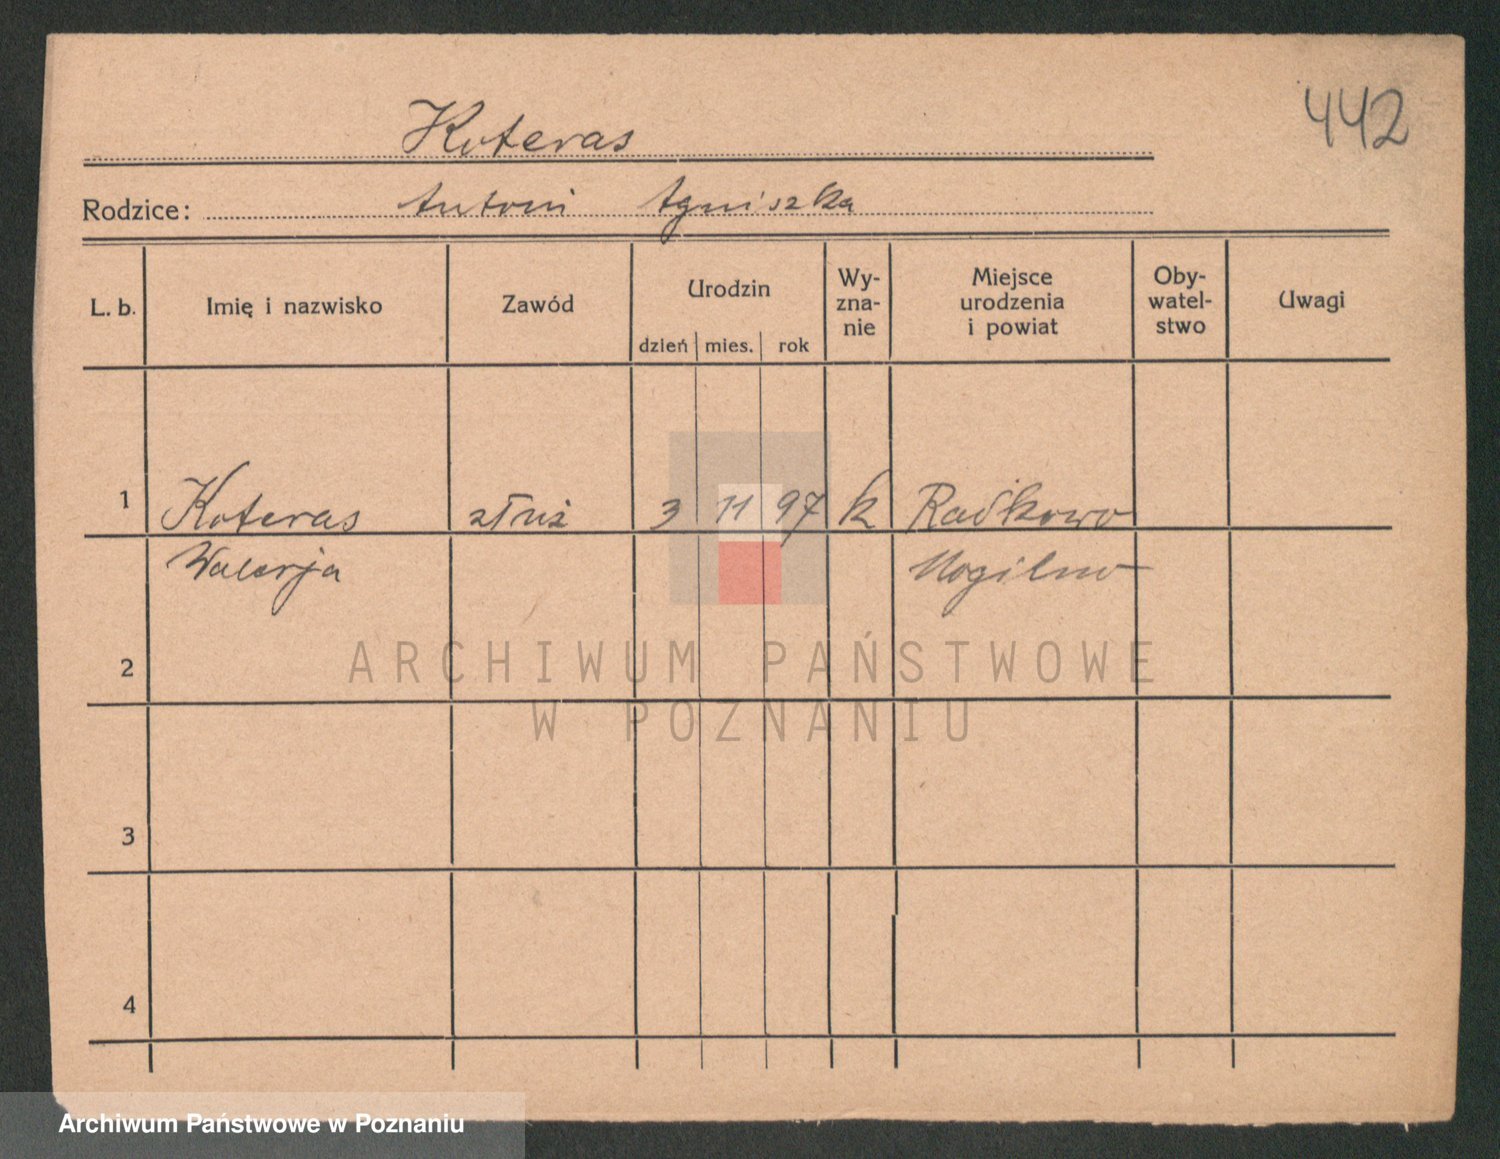 442
Koteras
Rodzice: Antoni Agniszka
L. b. Imię i nazwisko Zawód Urodzin dzień mies. rok Wy-zna-nie Miejsce urodzenia i powiat Oby-watel-stwo Uwagi
1 Koteras złuż 3 11 97 k Radkowo
Walerja Mogilno
2
ARCHIWUM PAŃSTWOWE
W POZNANIU
3
4
Archiwum Państwowe w Poznaniu